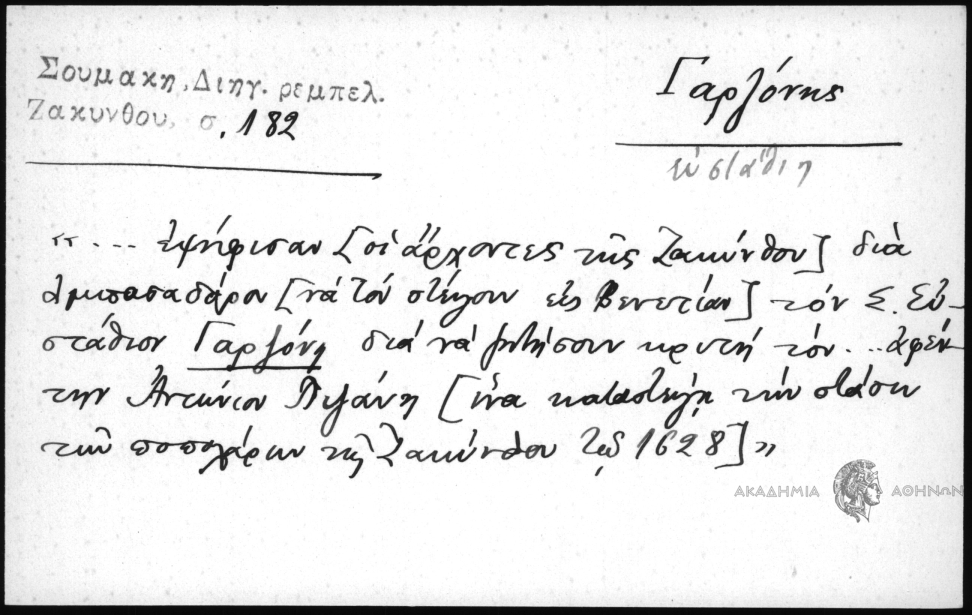 Σουμακη, Διηγ. ρεμπελ.
Ζακυνθου, σ. 182
Γαρζόνης
εὐστάθιη
«... ἐψήφισαν [οἱ ἄρχοντες τῆς Ζακύνθου] διὰ
ἀμπασαδόρον [νὰ τὸν στείλουν εἰς Βενετίαν] τὸν Σ. Εὐ-
στάθιον Γαρζόνη διὰ νὰ ζητήσουν κριτὴ τὸν ... ἀφέν-
την Ἀντώνιον Πιζάνη [ἵνα καταστείλῃ τὴν στάσιν
τῶν ποπολάρων τῆς Ζακύνθου τῷ 1628]»
ΑΚΑΔΗΜΙΑ ΑΘΗΝΩΝ